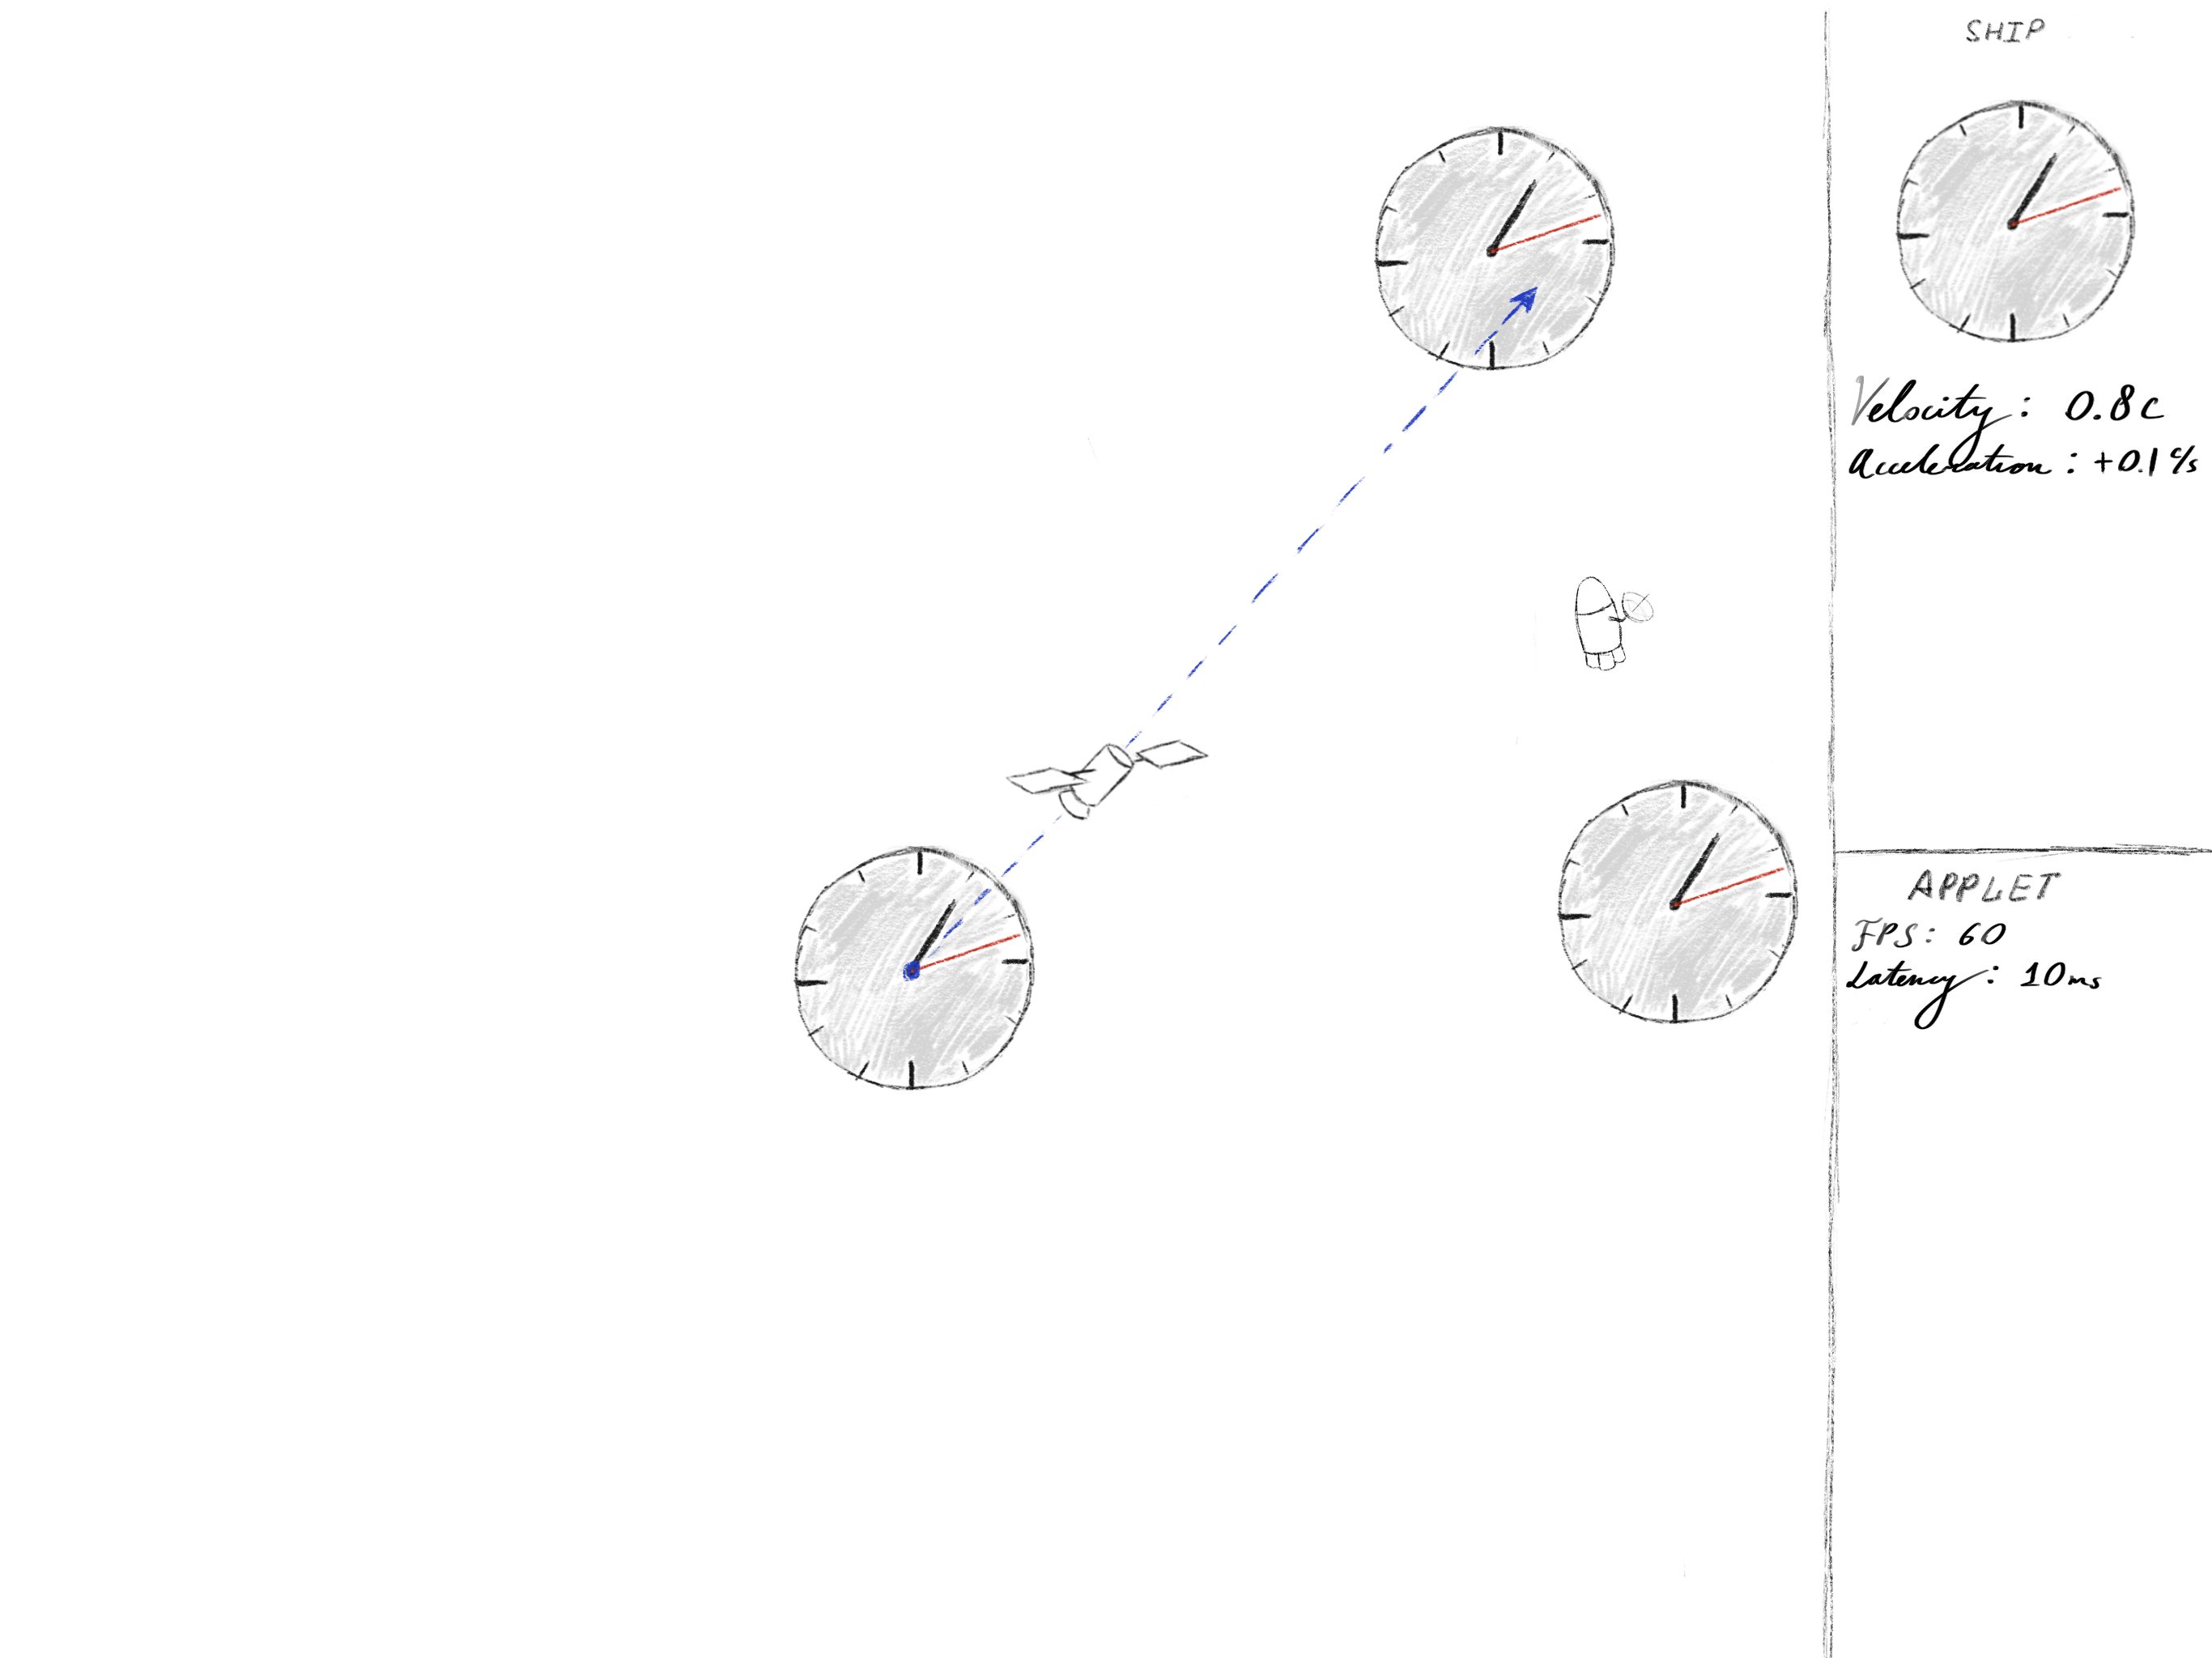 SHIP
Velocity: 0.8c
Acceleration: +0.1 c/s
APPLET
FPS: 60
Latency: 10ms